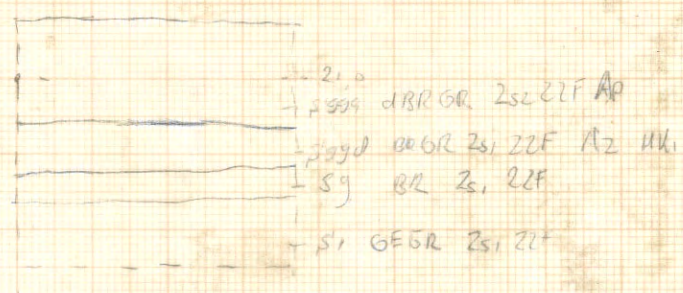 2,0
sggg dBRGR 2s2 22F Ap
sggd BRGR 2s1 22F A2 HK1
sg BR 2s1 22F
s1 GEGR 2s1 22F